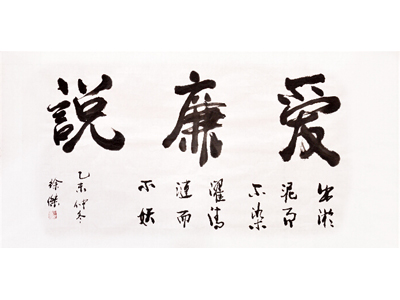 爱廉說
出淤
泥而
不染
濯清
涟而
不妖
乙未仲冬
徐傑